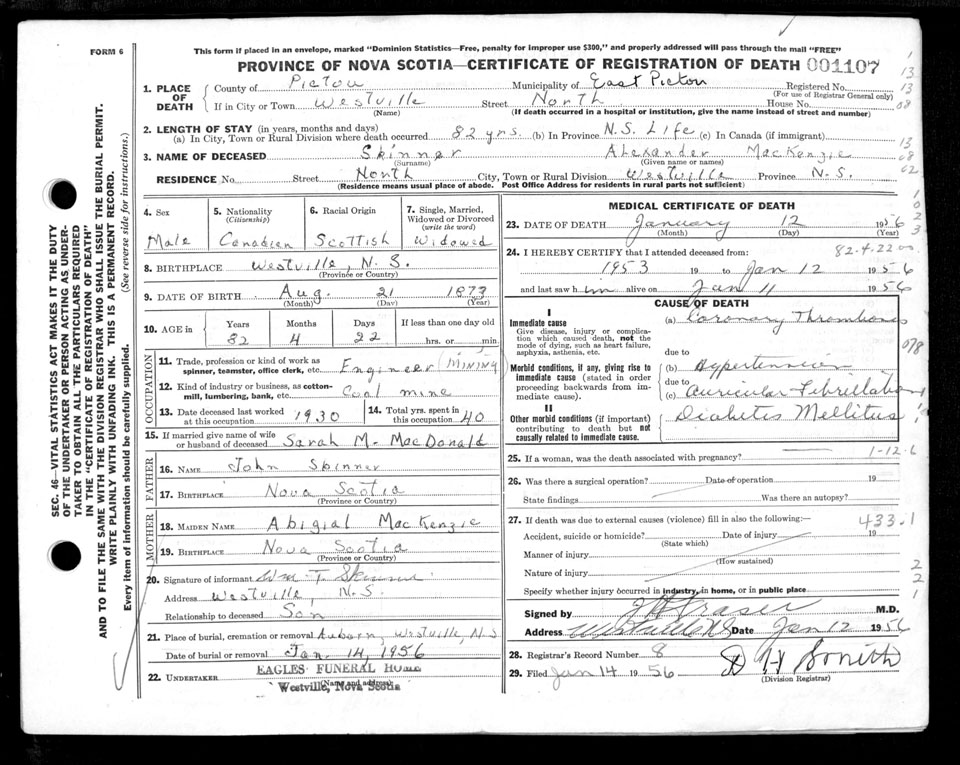 FORM 6
This form if placed in an envelope, marked "Dominion Statistics—Free, penalty for improper use $300," and properly addressed will pass through the mail "FREE"
PROVINCE OF NOVA SCOTIA—CERTIFICATE OF REGISTRATION OF DEATH 001107
SEC. 46—VITAL STATISTICS ACT MAKES IT THE DUTY
OF THE UNDERTAKER OR PERSON ACTING AS UNDER-
TAKER TO OBTAIN ALL THE PARTICULARS REQUIRED
IN THE "CERTIFICATE OF REGISTRATION OF DEATH"
AND TO FILE THE SAME WITH THE DIVISION REGISTRAR WHO SHALL ISSUE THE BURIAL PERMIT.
WRITE PLAINLY WITH UNFADING INK. THIS IS A PERMANENT RECORD.
Every item of information should be carefully supplied. (See reverse side for instructions.)
1. PLACE OF DEATH
County of Pictou Municipality of East Pictou Registered No.
(For use of Registrar General only)
If in City or Town Westville Street North House No.
(Name) (If death occurred in a hospital or institution, give the name instead of street and number)
2. LENGTH OF STAY (in years, months and days)
(a) In City, Town or Rural Division where death occurred 82 yrs. (b) In Province N.S. Life (c) In Canada (if immigrant)
3. NAME OF DECEASED Skinner Alexander MacKenzie
(Surname) (Given name or names)
RESIDENCE No Street North City, Town or Rural Division Westville Province N.S.
(Residence means usual place of abode. Post Office Address for residents in rural parts not sufficient)
4. Sex
Male
5. Nationality
(Citizenship)
Canadian
6. Racial Origin
Scottish
7. Single, Married,
Widowed or Divorced
(write the word)
Widowed
8. BIRTHPLACE Westville, N.S.
(Province or Country)
9. DATE OF BIRTH Aug. 21 1873
(Month) (Day) (Year)
10. AGE in Years Months Days If less than one day old
82 4 22 hrs. or min.
OCCUPATION
11. Trade, profession or kind of work as
spinner, teamster, office clerk, etc. Engineer (MINING)
12. Kind of industry or business, as cotton-
mill, lumbering, bank, etc. Coal mine
13. Date deceased last worked
at this occupation 1930
14. Total yrs. spent in
this occupation 40
15. If married give name of wife
or husband of deceased Sarah M. MacDonald
FATHER
16. NAME John Skinner
17. BIRTHPLACE Nova Scotia
(Province or Country)
MOTHER
18. MAIDEN NAME Abigial MacKenzie
19. BIRTHPLACE Nova Scotia
(Province or Country)
20. Signature of informant Wm T. Skinner
Address Westville, N.S.
Relationship to deceased Son
21. Place of burial, cremation or removal Auborn, Westville, N.S
Date of burial or removal Jan. 14, 1956
22. UNDERTAKER EAGLES FUNERAL HOME
(Name and address)
Westville, Nova Scotia
MEDICAL CERTIFICATE OF DEATH
23. DATE OF DEATH January 12 1956
(Month) (Day) (Year)
24. I HEREBY CERTIFY that I attended deceased from: 82.4.22
1953 19 to Jan 12 1956
and last saw him alive on Jan 11 1956
CAUSE OF DEATH
I
Immediate cause
Give disease, injury or complica-
tion which caused death, not the
mode of dying, such as heart failure,
asphyxia, asthenia, etc.
(a) Coronary Thrombosis
due to
Morbid conditions, if any, giving rise to
immediate cause (stated in order
proceeding backwards from im-
mediate cause).
(b) Hypertension
due to
(c) Auricular Fibrillation
II
Other morbid conditions (if important)
contributing to death but not
causally related to immediate cause.
Diabetis Mellitus
25. If a woman, was the death associated with pregnancy? 1-12.6
26. Was there a surgical operation? Date of operation 19
State findings Was there an autopsy?
27. If death was due to external causes (violence) fill in also the following:— 433.1
Accident, suicide or homicide? Date of injury 19
(State which)
Manner of injury
(How sustained)
Nature of injury
Specify whether injury occurred in industry, in home, or in public place
Signed by J H Fraser M.D.
Address Westville NS Date Jan 12 1956
28. Registrar's Record Number 8
29. Filed Jan 14 1956 D H Smith
(Division Registrar)